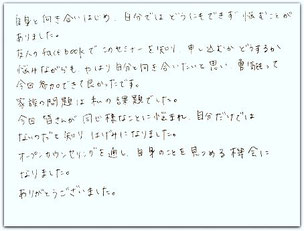 自身と向き合いはじめ、自分ではどうにもできず悩むことが
ありました。
友人のfacebookでこのセミナーを知り、申し込むかどうするか
悩みながらも、やはり自分と向き合いたいと思い 勇気もって
今回参加できて良かったです。
家族の問題は私の課題でした。
今回 皆さんが同じ様なことに悩まれ、自分だけでは
ないのだと知り はげみになりました。
オープンカウンセリングを通し、自身のことを見つめる機会に
なりました。
ありがとうございました。